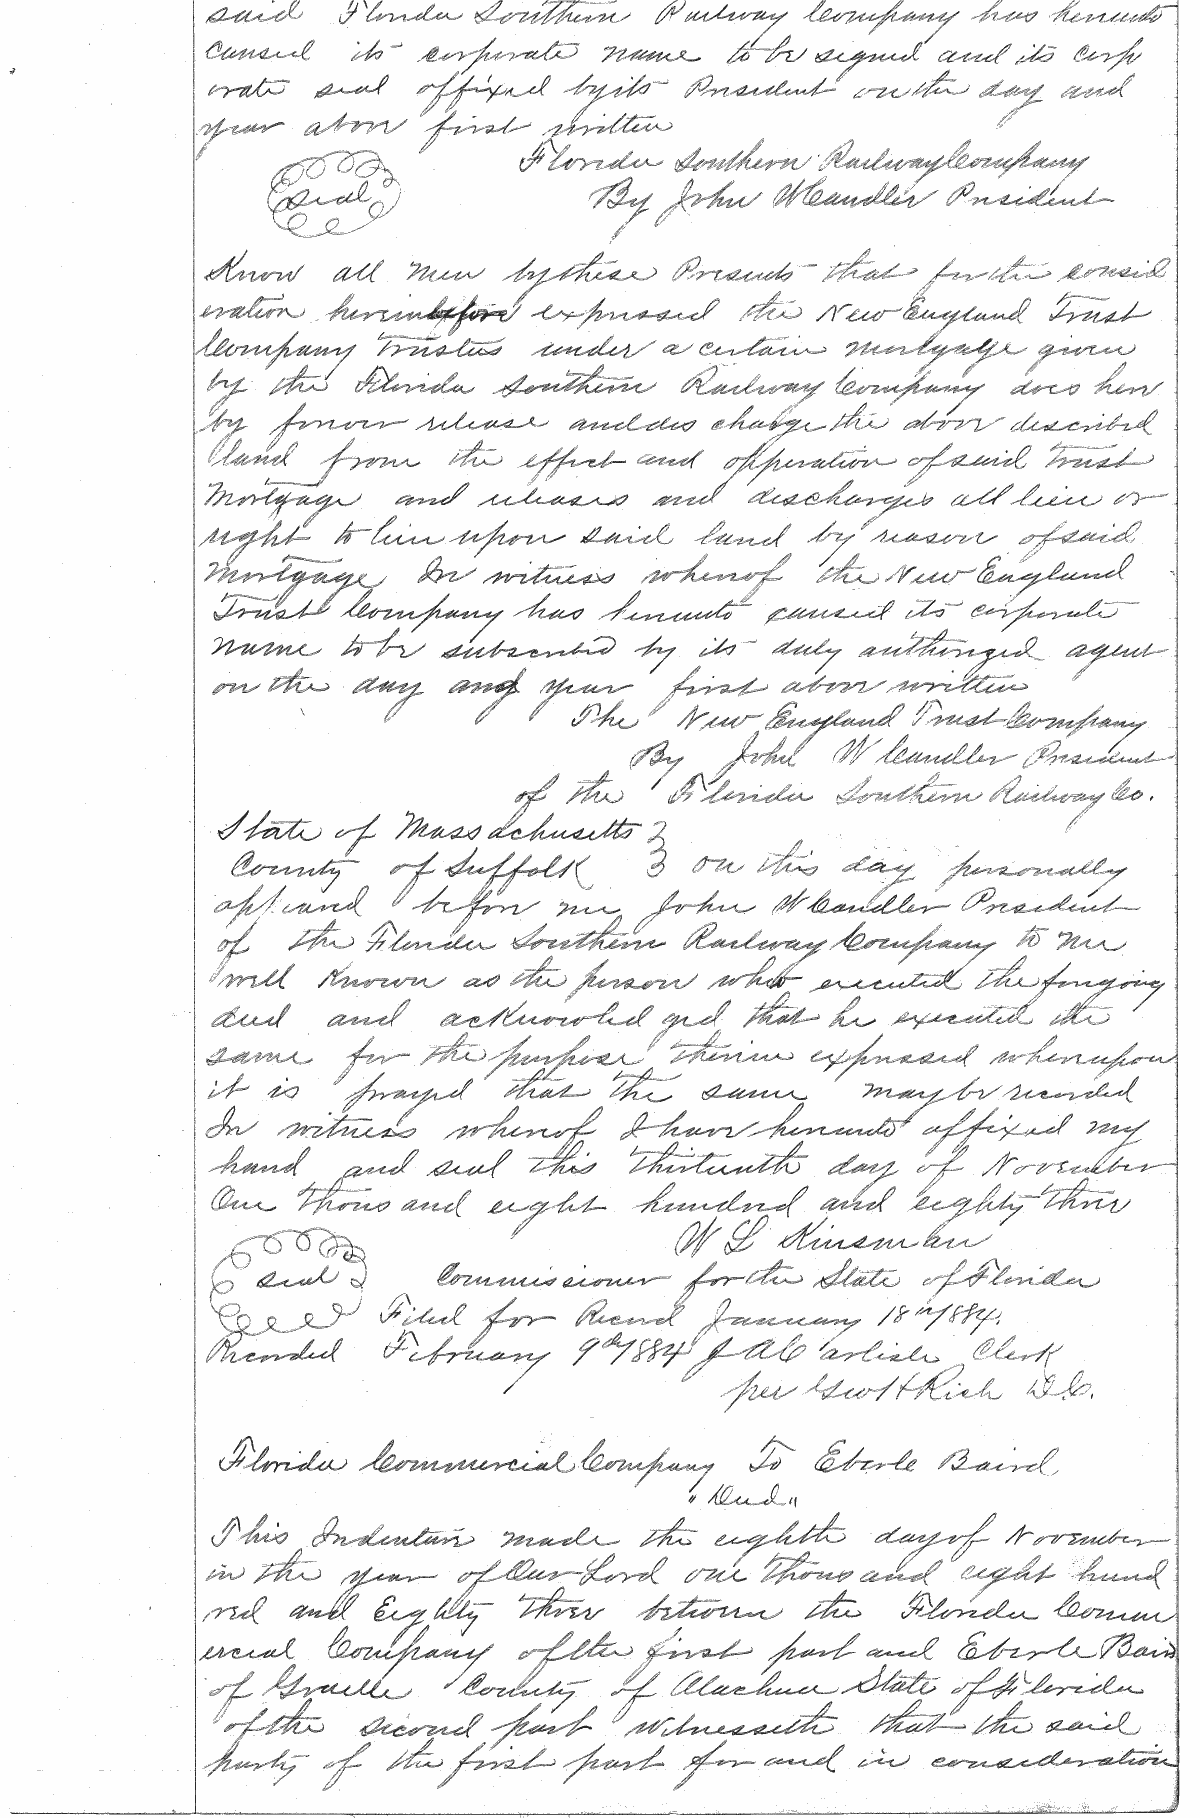 said Florida Southern Railway Company has hereunto
caused its corporate name to be signed and its corp
orate seal affixed by its President on the day and
year above first written
Florida Southern Railway Company
seal
By John W Candler President
Know all Men by these Presents that for the consid
eration hereinbefore expressed the New England Trust
Company Trustees under a certain mortgage given
by the Florida Southern Railway Company does here
by forever release and discharge the above described
land from the effect and opperation of said Trust
Mortgage and releases and discharges all lien or
right to lien upon said land by reason of said
Mortgage In witness whereof the New England
Trust Company has hereunto caused its corporate
name to be subscribed by its duly authorized agent
on the day and year first above written
The New England Trust Company
By John W Candler President
of the Florida Southern Railway Co.
State of Massachusetts
County of Suffolk on this day personally
appeared before me John W Candler President
of the Florida Southern Railway Company to me
well Known as the person who executed the foregoing
deed and acknowledged that he executed the
same for the purpose therein expressed whereupon
it is prayed that the same may be recorded
In witness whereof I have hereunto affixed my
hand and seal this thirteenth day of November
One thousand eight hundred and eighty three
W L Kinsman
seal Commissioner for the State of Florida
Filed for Record January 18th 1884.
Recorded February 9th 1884 J A Carlisle Clerk
per Geo H Rich D.C.
Florida Commercial Company To Eberle Baird
"Deed"
This Indenture made the eighth day of November
in the year of Our Lord one thousand eight hund
red and Eighty three between the Florida Comm
ercial Company of the first part and Eberle Baird
of County of Alachua State of Florida
of the second part Witnesseth that the said
party of the first part for and in consideration